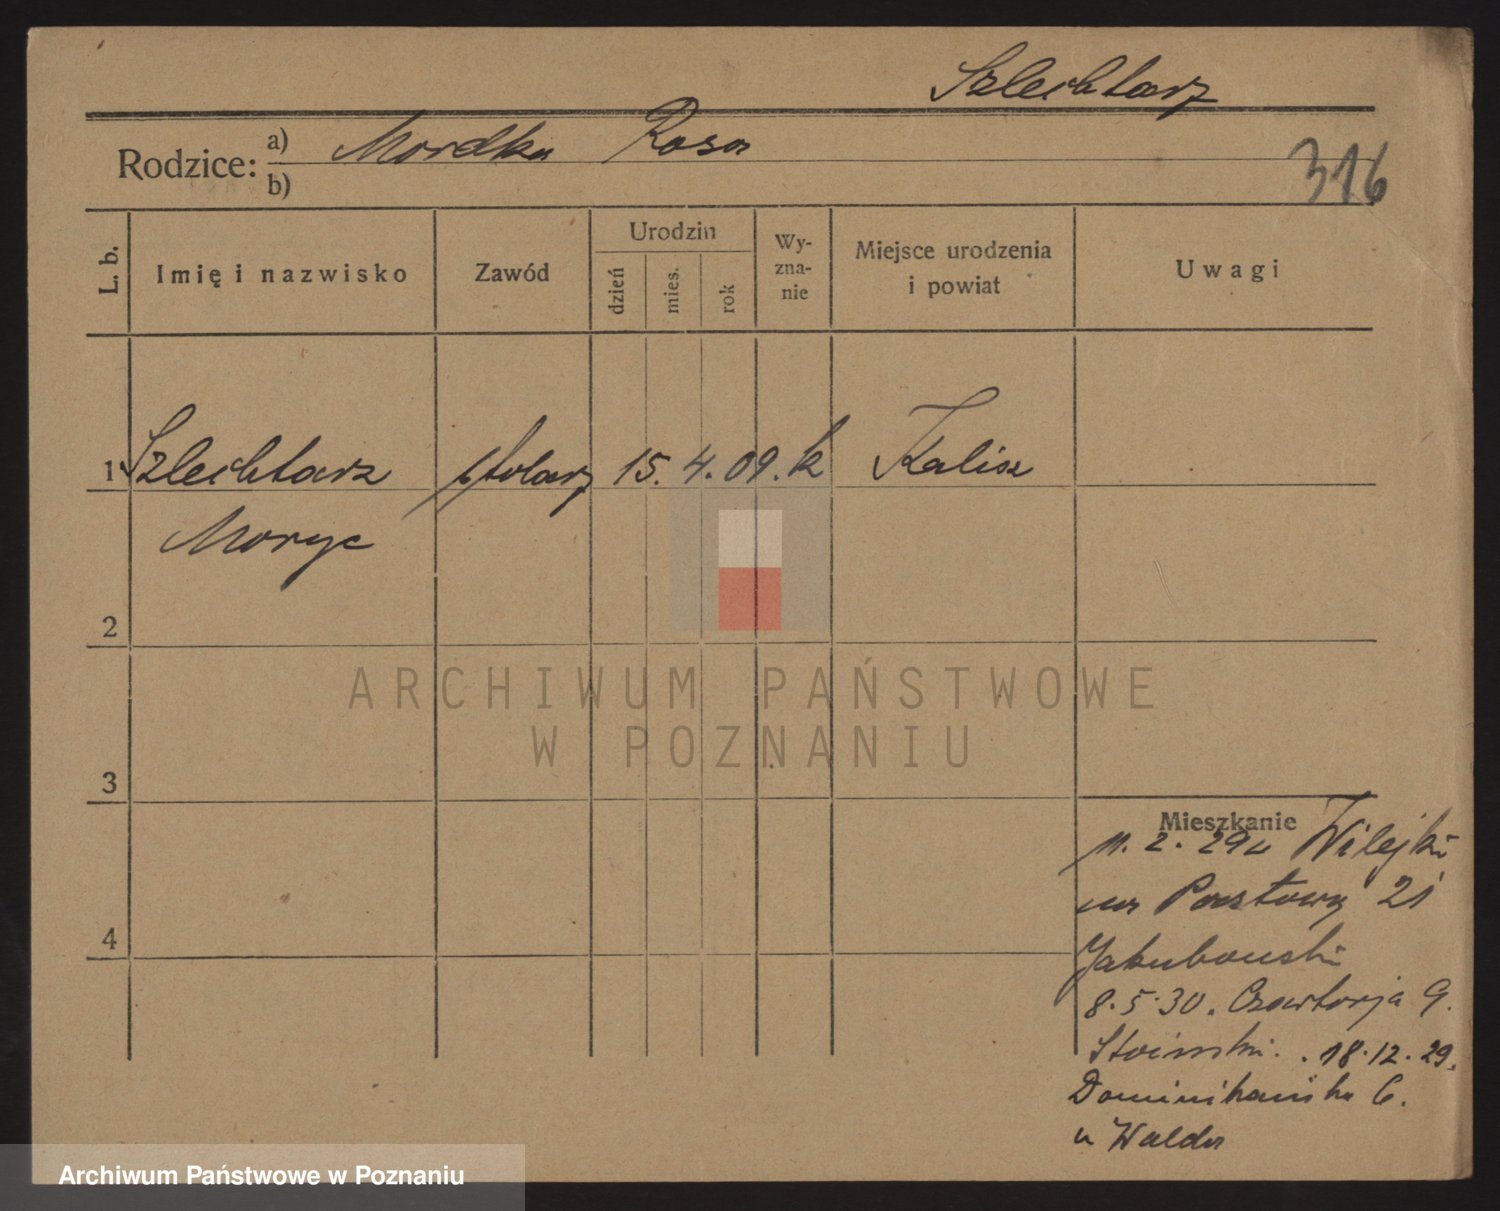 Szlechtarz
Rodzice: a) Mordka Rosa
b)
316
L. b.
Imię i nazwisko
Zawód
Urodzin
dzień
mies.
rok
Wy-
zna-
nie
Miejsce urodzenia
i powiat
Uwagi
1 Szlechtarz stolarz 15. 4. 09. k Kalisz
Moryc
2
3
4
Mieszkanie
11. 2. 29 u Wilejki
Pocztowy 21
Jakubowski
8.5.30. Czartorja 9.
18.12.29.
Dominikańska 6.
u Walda
ARCHIWUM PAŃSTWOWE
W POZNANIU
Archiwum Państwowe w Poznaniu